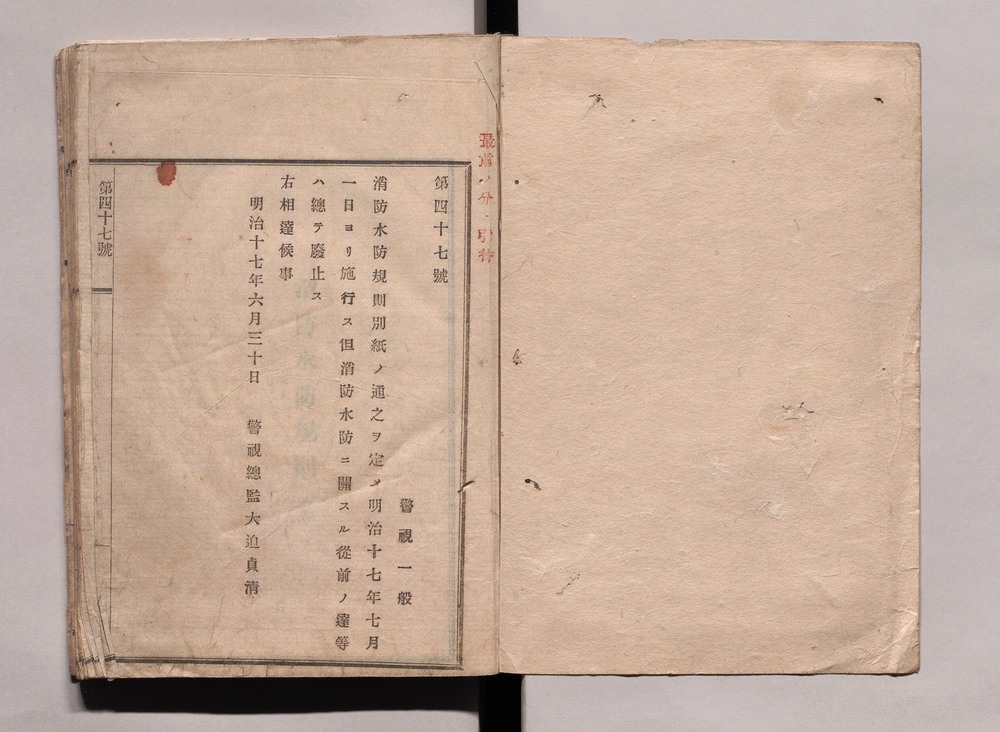 最前ノ分、引替
第四十七號
警視一般
消防水防規則別紙ノ通之ヲ定メ明治十七年七月
一日ヨリ施行ス但消防水防ニ關スル從前ノ達等
ハ總テ廢止ス
右相達候事
明治十七年六月三十日 警視總監大迫貞淸
第四十七號